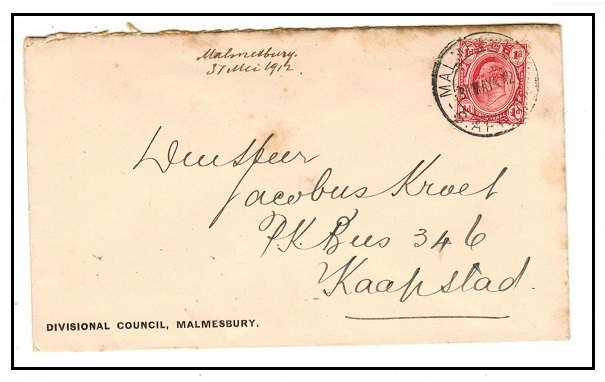 Malmesbury.
31 Mei 1912.
MALM
31 MAY 12
S. AFR
1d
Jacobus Kroet
P.K. Bus 346
Kaapstad.
DIVISIONAL COUNCIL, MALMESBURY.